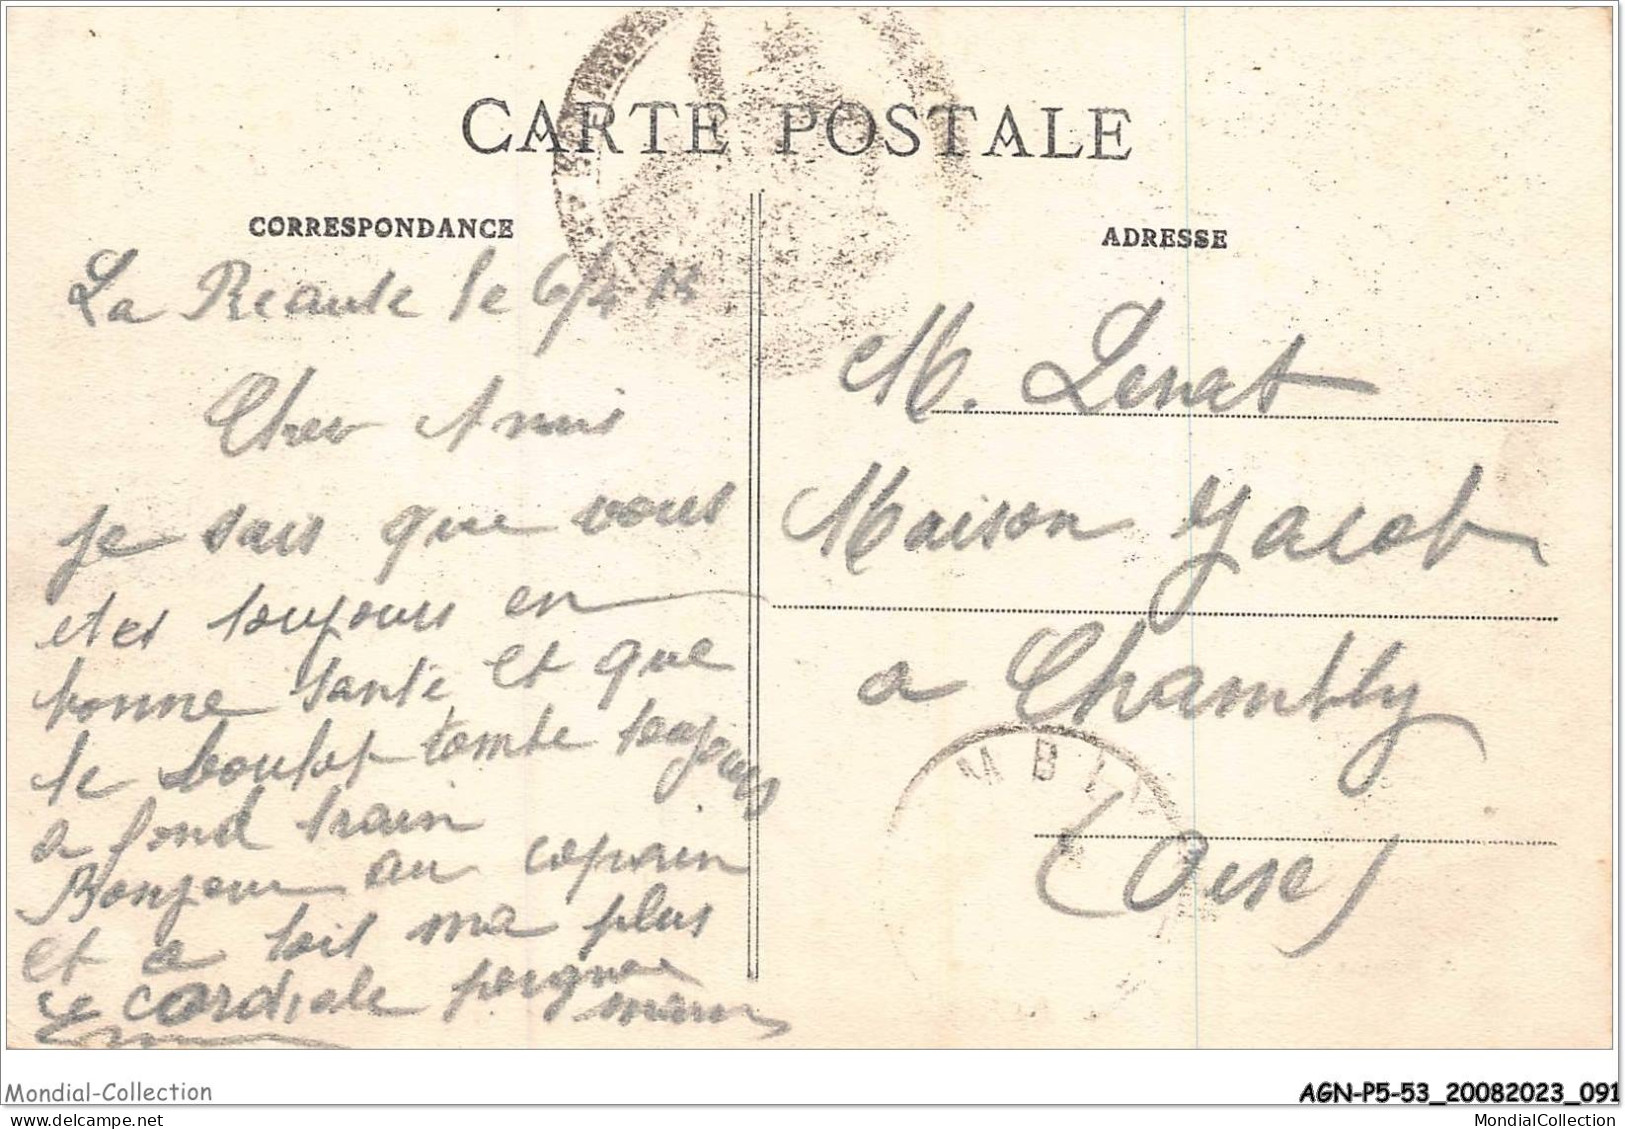 CARTE POSTALE
CORRESPONDANCE
La Reaute le 6/4
Cher Amis
je sais que vous
etes toujours en
bonne santé, et que
le boulot tombe toujours
a fond train
Bonjour au copain
et a toit ma plus
cordiale poigne
main
ADRESSE
M. Lenat
Maison Jacob
a Chambly
MBL
(Oise)
Mondial-Collection
AGN-P5-53_20082023_091
MondialCollection